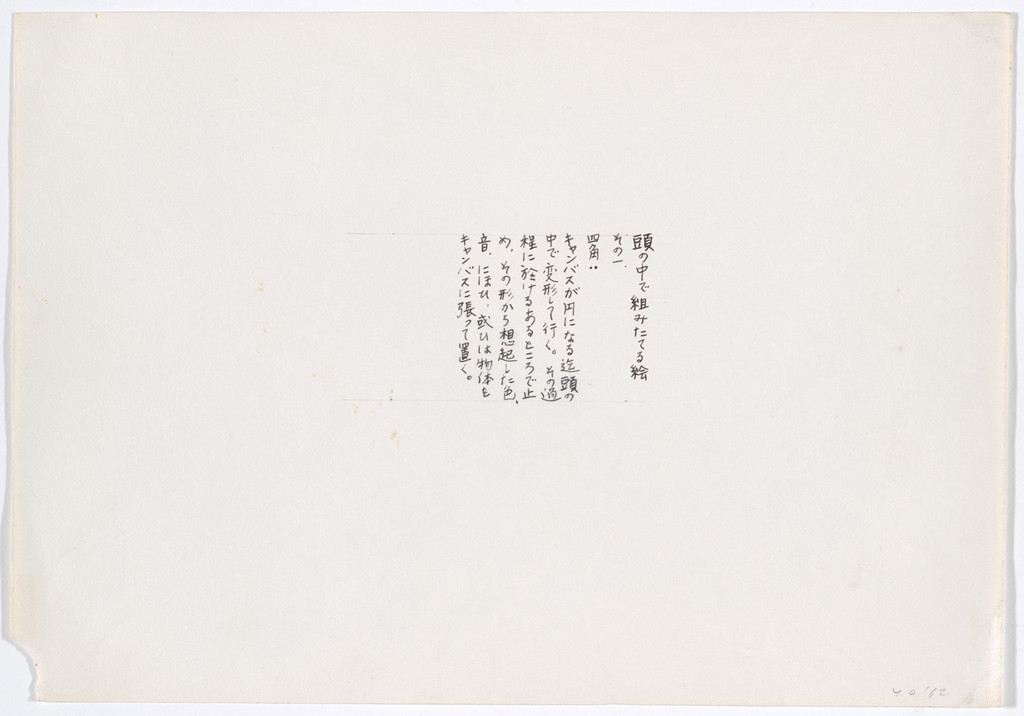 頭の中で組みたてる絵
その一.
四角:
キャンバスが円になる迄頭の
中で変形して行く。その過
程に於けるあるところで止
め、その形から想起した色、
音、にほひ、或ひは物体を
キャンバスに張って置く。
y.o.'62